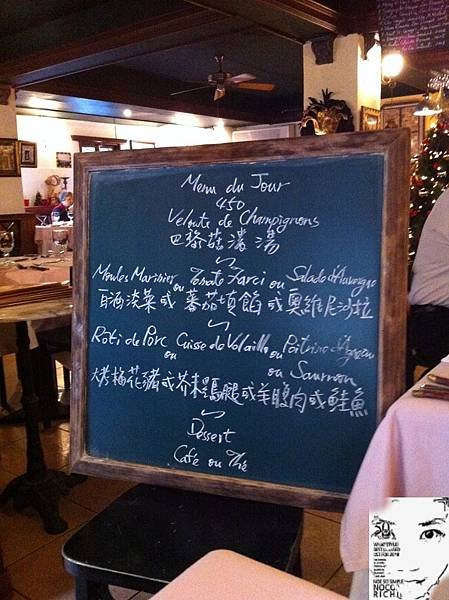 Menu du Jour
450
Veloute de Champignons
巴黎菇濃湯
Moules Marinier ou Tomate Farci ou Salade d'Auvergne
白酒淡菜或蕃茄填餡或奧維尼沙拉
Roti de Porc Cuisse de Volaille ou Poitrine d'Agneau
ou ou Saumon
烤梅花豬或芥末鴨腿或羊腹肉或鮭魚
Dessert
Café ou Thé
50
NOCO
RICH